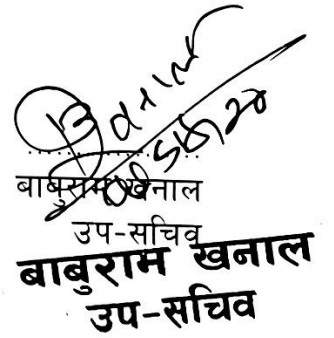 ..................
बाबुराम खनाल
उप-सचिव
बाबुराम खनाल
उप-सचिव